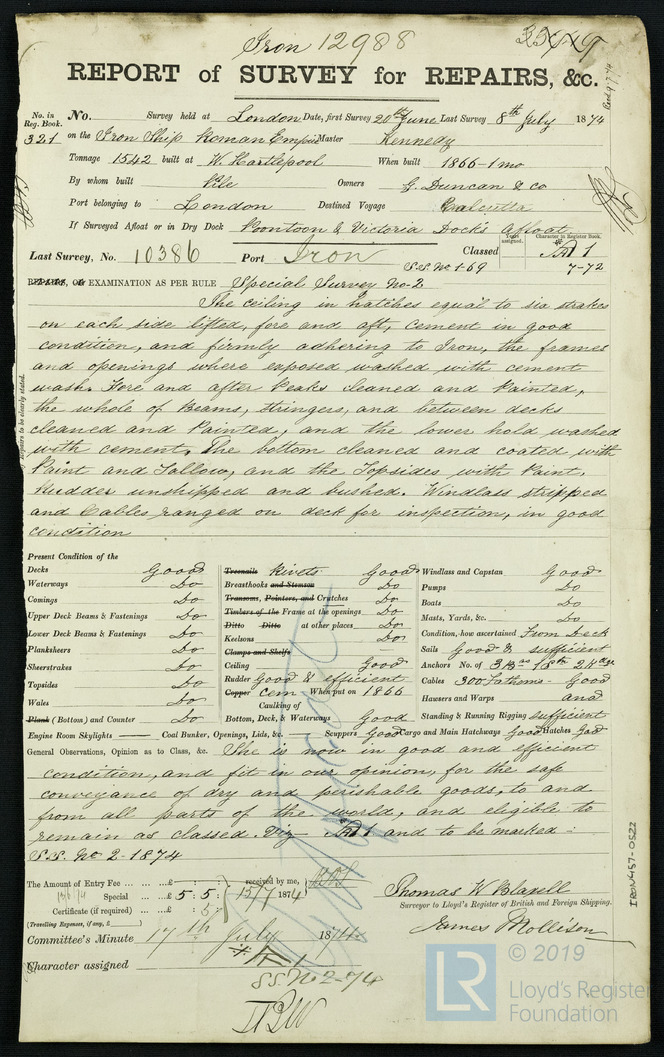 Iron 12988
REPORT of SURVEY for REPAIRS, &c.
No. in Reg. Book. No. Survey held at London Date, first Survey 20th June Last Survey 8th July 1874
321 on the Iron Ship Roman Empire Master Kennedy
Tonnage 1542 built at W. Hartlepool When built 1866-1mo
By whom built Pile Owners G. Duncan & Co
Port belonging to London Destined Voyage Calcutta
If Surveyed Afloat or in Dry Dock Pontoon & Victoria Docks Afloat
Years assigned. Character in Register Book.
Last Survey, No. 10386 Port Iron Classed A 1
S.S. No 1-69 7-72
REPAIRS, OR EXAMINATION AS PER RULE Special Survey No-2
The ceiling in hatches equal to six strakes
on each side lifted, fore and aft, cement in good
condition, and firmly adhering to Iron, the frames
and openings where exposed washed with cement
wash. Fore and after Peaks cleaned and Painted,
the whole of Beams, Stringers, and between decks
cleaned and Painted, and the lower hold washed
with cement. The bottom cleaned and coated with
Paint and Tallow, and the Topsides with Paint.
Rudder unshipped and bushed. Windlass stripped
and Cables ranged on deck for inspection, in good
condition
Repairs to be clearly stated.
Present Condition of the
Decks Good
Waterways Do
Comings Do
Upper Deck Beams & Fastenings Do
Lower Deck Beams & Fastenings Do
Planksheers Do
Sheerstrakes Do
Topsides Do
Wales Do
Plank (Bottom) and Counter Do
Treenails Rivets Good
Breasthooks and Stemson Do
Transoms, Pointers, and Crutches Do
Timbers of the Frame at the openings Do
Ditto Ditto at other places Do
Keelsons Do
Clamps and Shelfs
Ceiling Good
Rudder Good & efficient
Copper Cem When put on 1866
Caulking of
Bottom, Deck, & Waterways Good
Windlass and Capstan Good
Pumps Do
Boats Do
Masts, Yards, &c. Do
Condition, how ascertained From Deck
Sails Good & sufficient
Anchors No. of 3
Cables 300 Fathoms - Good
Hawsers and Warps and
Standing & Running Rigging sufficient
Engine Room Skylights Coal Bunker, Openings, Lids, &c. Scuppers Good Cargo and Main Hatchways Good Hatches Good
General Observations, Opinion as to Class, &c. She is now in good and efficient
condition, and fit in our opinion, for the safe
conveyance of dry and perishable goods, to and
from all parts of the world, and eligible to
remain as classed. Viz A 1 and to be marked :
S.S. No 2-1874
The Amount of Entry Fee ... £ : : received by me,
Special ... £ 5 : 5 : 15/7 1874
Certificate (if required) ... : 5 :
(Travelling Expenses, if any, £ )
Thomas W Blaxell
Surveyor to Lloyd's Register of British and Foreign Shipping.
James Mollison
Committee's Minute 17th July 1874
Character assigned A 1
S.S. No 2-74
IRON457-0522
© 2019
LR
Lloyd's Register
Foundation